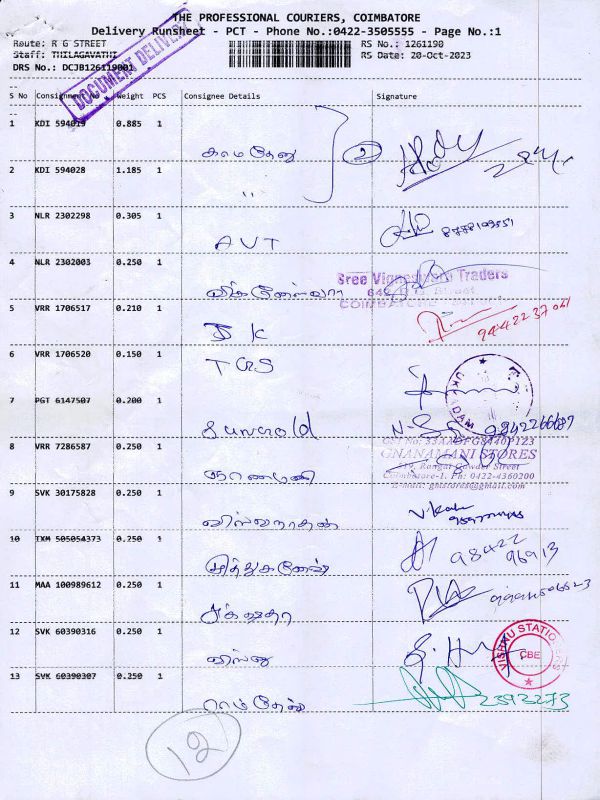 THE PROFESSIONAL COURIERS, COIMBATORE
Delivery Runsheet - PCT - Phone No.:0422-3505555 - Page No.:1
Route: R G STREET RS No.: 1261190
Staff: THILAGAVATHI RS Date: 20-Oct-2023
DRS No.: DCJB126119001
DOCUMENT DELIVERY
S No Consignment No Weight PCS Consignee Details Signature
1 KDI 594019 0.885 1 காமதேனு 2
2 KDI 594028 1.185 1 ''
3 NLR 2302298 0.305 1 AVT
4 NLR 2302003 0.250 1 விக்னேஸ்வரா Sree Vigneswara Traders
5 VRR 1706517 0.210 1 JK
6 VRR 1706520 0.150 1 TCRS UKKADAM
7 PGT 6147507 0.200 1 9842266687
8 VRR 7286587 0.250 1 ஞானமணி
GNANAMANI STORES
519, Rangai Gowder Street
Coimbatore-1. Ph: 0422-4360200
E-mail: gnistores@gmail.com
9 SVK 30175828 0.250 1 விஸ்வநாதன்
10 IXM 505054373 0.250 1 98422 96913
11 MAA 100989612 0.250 1
12 SVK 60390316 0.250 1 விஸ்ணு VISHNU STATIONERS CBE
13 SVK 60390307 0.250 1 ராம்தேவ் 2392273
12